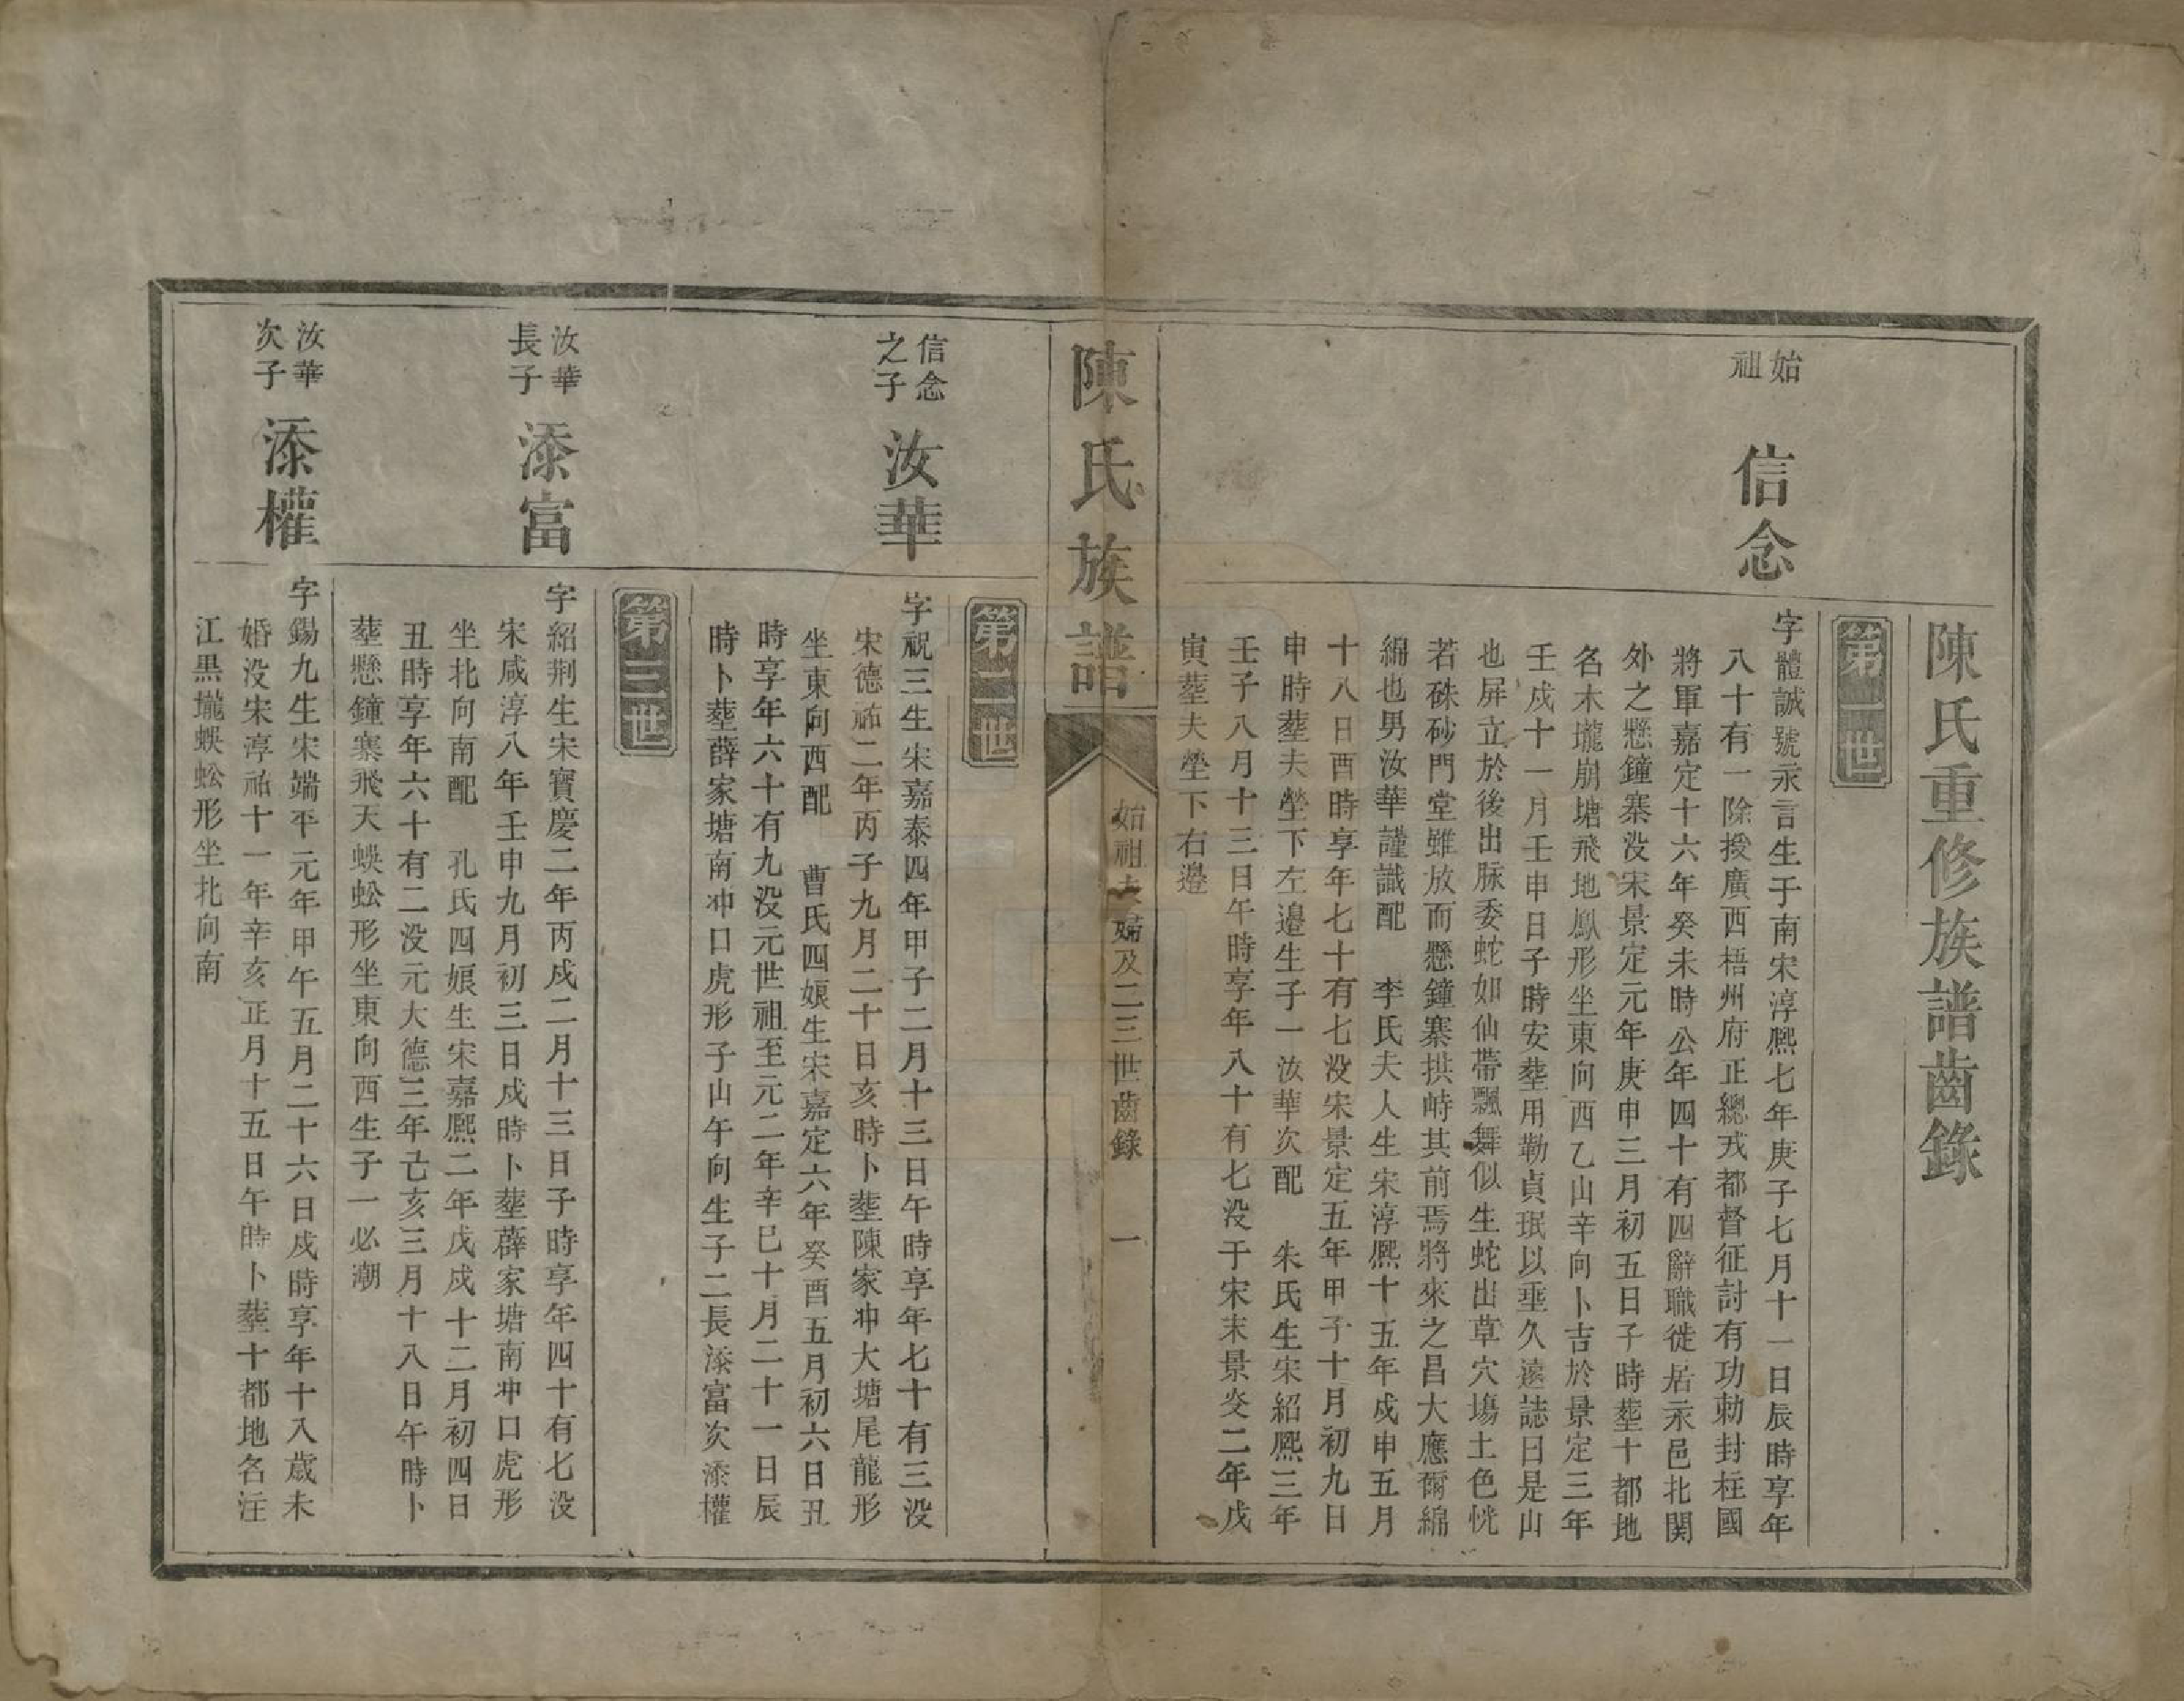 陳氏重修族譜齒錄
第一世
始祖
信念
字體誠號永言生于南宋淳熙七年庚子七月十一日辰時享年
八十有一除授廣西梧州府正總戎都督征討有功勅封柱國
將軍嘉定十六年癸未時公年四十有四辭職徙居永邑北関
外之懸鐘寨没宋景定元年庚申三月初五日子時塟十都地
名木壠崩塘飛地鳳形坐東向西乙山辛向卜吉於景定三年
壬戌十一月壬申日子時安塟用勒貞珉以埀久遠誌曰是山
也屏立於後出脉委蛇如仙帶飄舞似生蛇出草穴塲土色恍
若硃砂門堂雖放而懸鐘寨拱峙其前焉將來之昌大應爾綿
綿也男汝華謹識配 李氏夫人生宋淳熙十五年戌申五月
十八日酉時享年七十有七没宋景定五年甲子十月初九日
申時塟夫塋下左邉生子一汝華次配 朱氏生宋紹熙三年
壬子八月十三日午時享年八十有七没于宋末景炎二年戊
寅塟夫塋下右邉
陳氏族譜
始祖夫婦及二三世齒錄 一
第二世
信念
之子
汝華
字祝三生宋嘉泰四年甲子二月十三日午時享年七十有三没
宋德祐二年丙子九月二十日亥時卜塟陳家冲大塘尾龍形
坐東向西配 曹氏四娘生宋嘉定六年癸酉五月初六日丑
時享年六十有九没元世祖至元二年辛巳十月二十一日辰
時卜塟薛家塘南冲口虎形子山午向生子二長添富次添權
第三世
汝華
長子
添富
字紹荆生宋寶慶二年丙戌二月十三日子時享年四十有七没
宋咸淳八年壬申九月初三日戌時卜塟薛家塘南冲口虎形
坐北向南配 孔氏四娘生宋嘉熙二年戊戌十二月初四日
丑時享年六十有二没元大德三年己亥三月十八日午時卜
塟懸鐘寨飛天蜈蚣形坐東向西生子一必潮
汝華
次子
添權
字錫九生宋端平元年甲午五月二十六日戌時享年十八歲未
婚没宋淳祐十一年辛亥正月十五日午時卜塟十都地名注
江黒壠蜈蚣形坐北向南